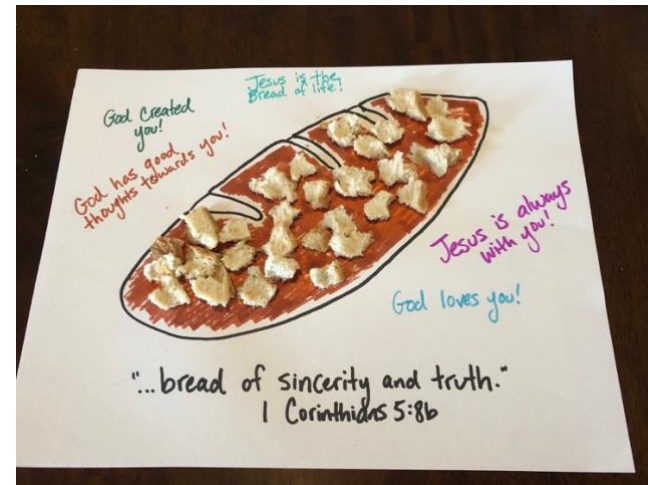 Jesus is the
Bread of life!
God Created
you!
God has good
thoughts towards you!
Jesus is always
with you!
God loves you!
"...bread of sincerity and truth."
1 Corinthians 5:8b